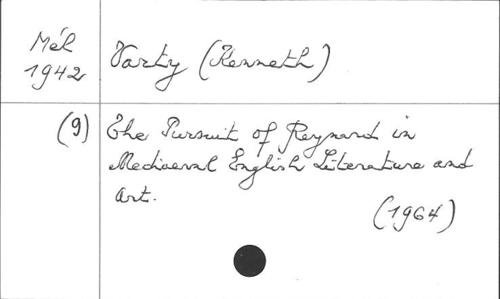 Mél
1942
Varty (Kenneth)
(9)
The Pursuit of Reynard in
Mediaeval English Literature and
Art.
(1964)